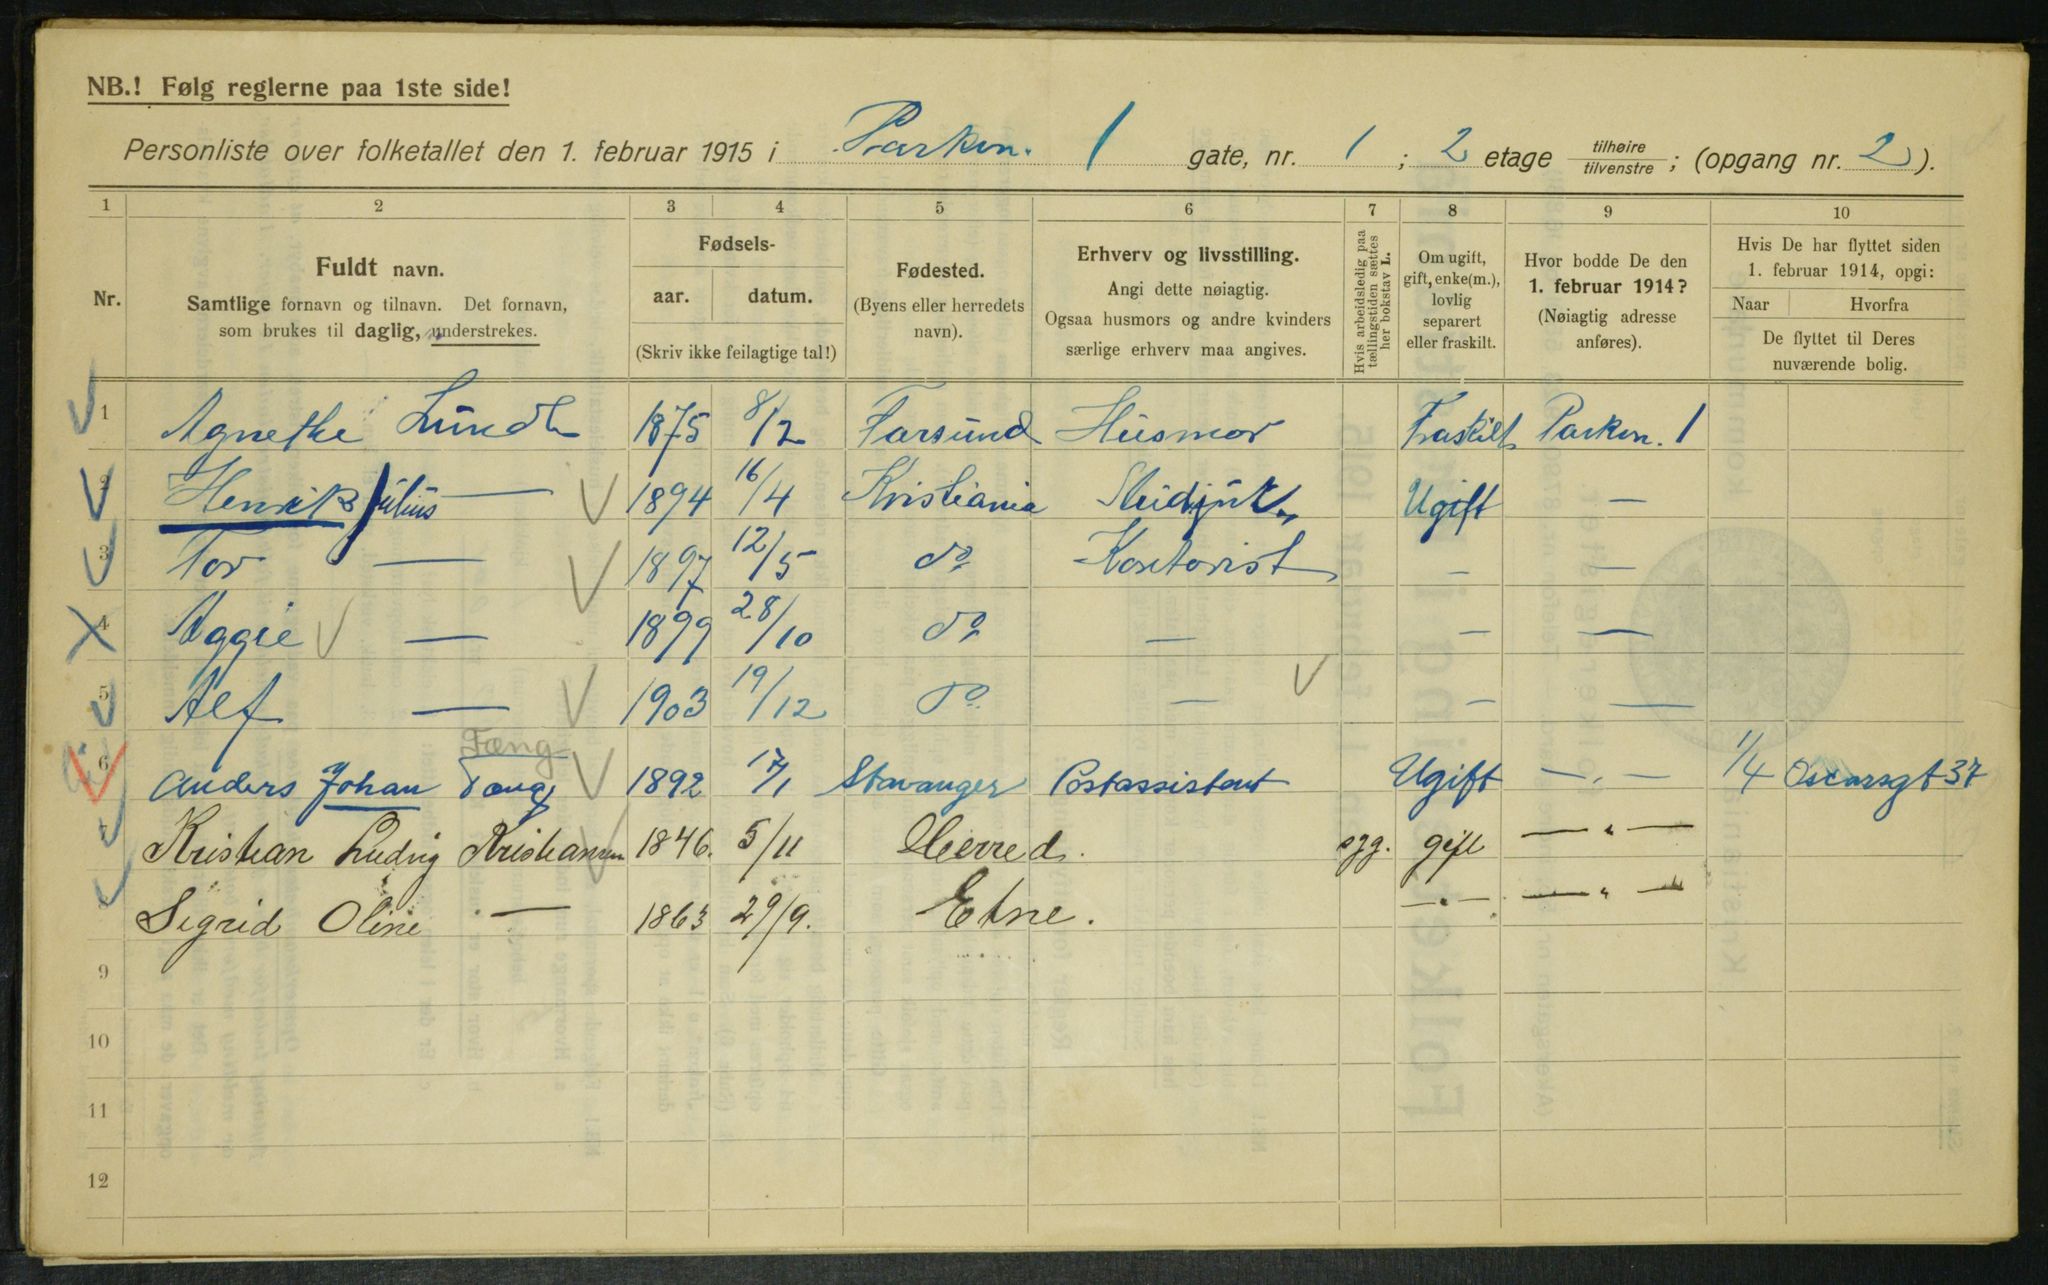 NB.! Følg reglerne paa 1ste side!
Personliste over folketallet den 1. februar 1915 i Parken. 1 gate, nr. 1 ; 2 etage tilhøire tilvenstre ; (opgang nr. 2 ).
1 2 3 4 5 6 7 8 9 10
Nr.
Fuldt navn.
Samtlige fornavn og tilnavn. Det fornavn,
som brukes til daglig, understrekes.
Fødsels-
aar. datum.
(Skriv ikke feilagtige tal!)
Fødested.
(Byens eller herredets
navn).
Erhverv og livsstilling.
Angi dette nøiagtig.
Ogsaa husmors og andre kvinders
særlige erhverv maa angives.
Hvis arbeidsledig paa
tællingstiden sættes
her bokstav L.
Om ugift,
gift, enke(m.),
lovlig
separert
eller fraskilt.
Hvor bodde De den
1. februar 1914?
(Nøiagtig adresse
anføres).
Hvis De har flyttet siden
1. februar 1914, opgi:
Naar Hvorfra
De flyttet til Deres
nuværende bolig.
1 Agnethe Lundh 1875 8/12 Farsund Husmor Fraskilt Parken. 1
2 Henrik Julius — 1894 16/4 Kristiania Stud. jur. Ugift —
3 Tor — 1897 12/5 do Kontorist — —
4 Aggie — 1899 28/10 do — — —
5 Alf — 1903 19/12 do — — —
Tæng
6 Anders Johan Tæng 1892 17/1 Stavanger Postassistent Ugift — " — 1/4 Oscarsgt 37
Kristian Ludvig Kristiansen 1846. 5/11 sgg. gift — " —
Sigrid Oline — 1863 29/9. Etne. — " — — " —
9
10
11
12